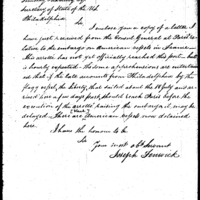 Secretary of State of the U.S.
Philadelphia
Sir
I enclose you a copy of a letter I
have just received from the Consul General at Paris re-
lative to the embargo on American vessels in France.
This arrêté has not yet officially reached this port but
is hourly expected. Some apprehensions are entertained
that if the late accounts from Philadelphia by the
flagg vessel, the Liberty, that sailed about the 18 July and ar-
rived here a few days past, should reach Paris before the
execution of the arrêté raising the embargo, it may be
delayed. There are American vessels now detained
here.
I have the honor to be
Sir
Your most ob Servant
Joseph Fenwick